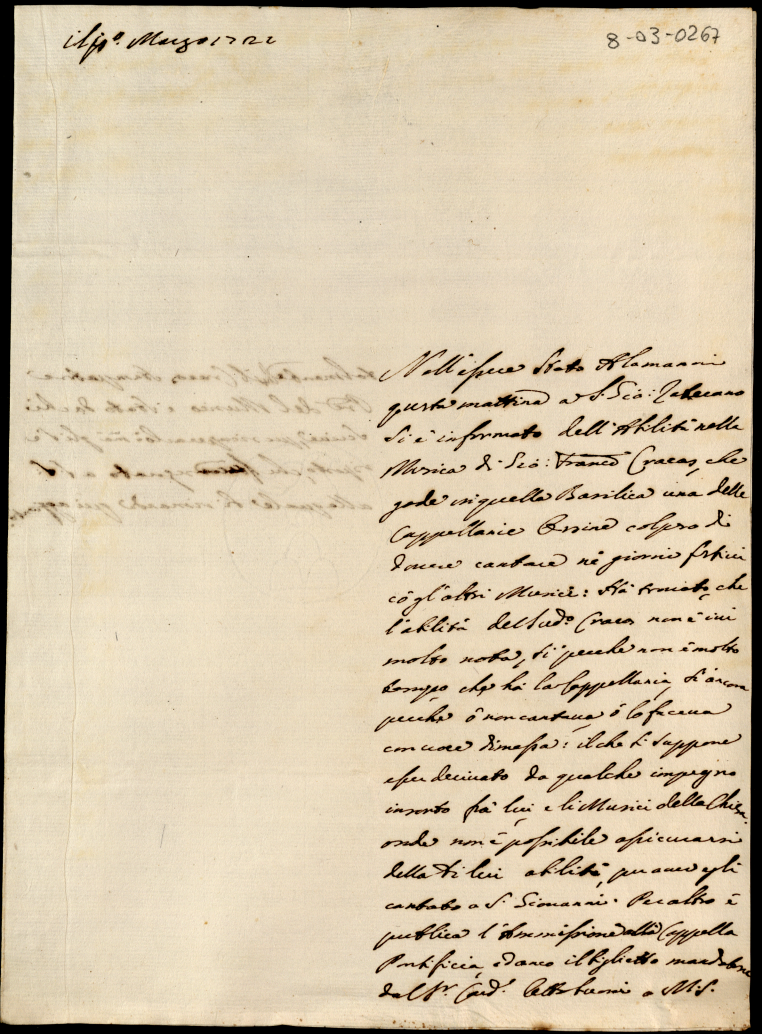 il p.º Marzo 1722
8-03-0267
Nell'essere stato Alamanni
questa mattina a S. Gio: Laterano
si è informato dell'Abilità nella
Musica di Gio: Franco Cracas, che
gode in quella Basilica una delle
Cappellanie Orsine col peso di
douer cantare nè giorni festiui
cõ gl'altri Musici: Hà trouato, che
l'abilità del sud.º Cracas non è iui
molto nota, si perche non è molto
tempo che hà la Cappellania, si ancora
perche ò non cantaua, ò lo faceua
con uoce dimessa: il che si suppone
esser deriuato da qualche impegno
insorto frà lui e li Musici della Chiesa,
onde non è possibile assicurarsi
della di lui abilità, per auer egli
cantato a S. Giouanni. Per altro è
publica l'Ammissione alla Cappella
Pontificia, ed anco il biglietto mandatone
dal S.r Card.l Ottoboni a M.S.